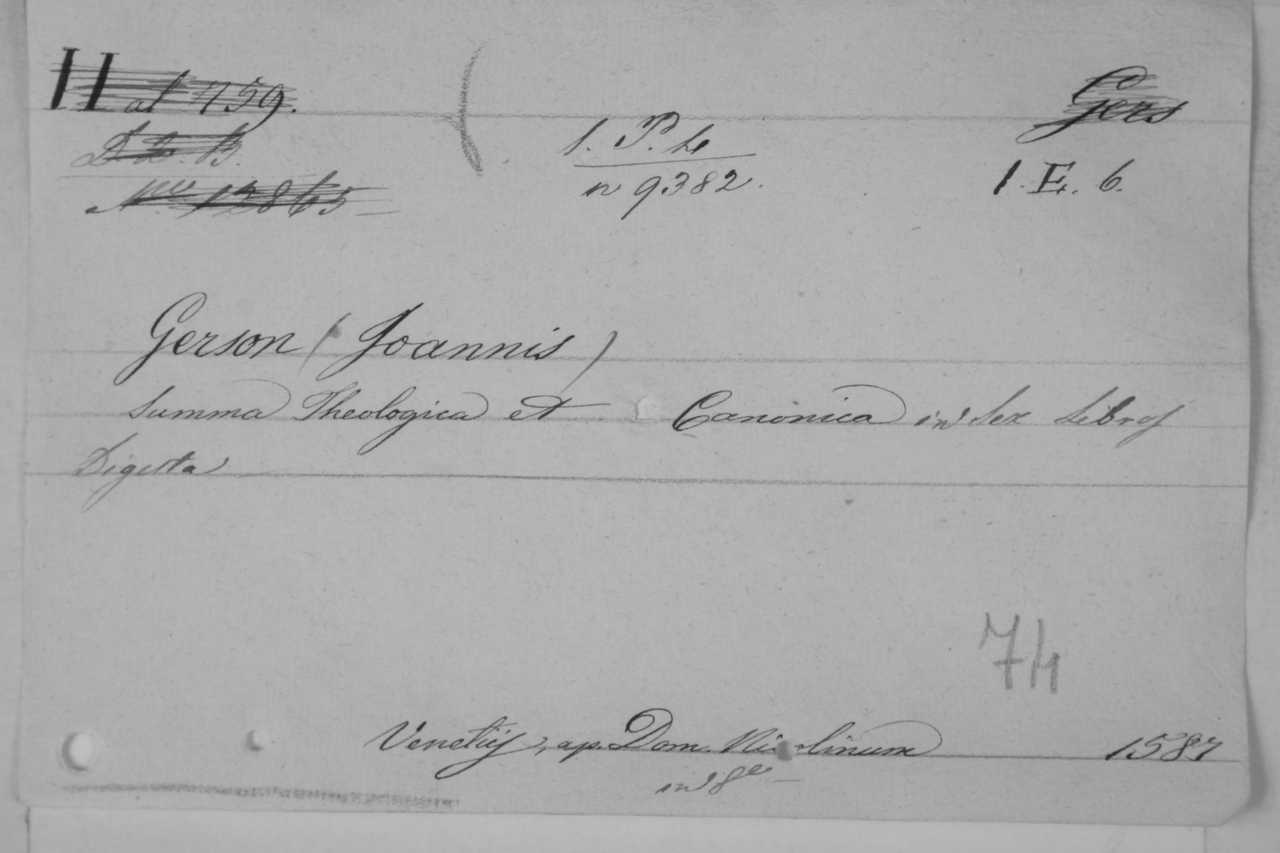 H al 759.
N.ro 13865
1. P. 4
n 9382.
Gers
1. E. 6.
Gerson (Joannis)
Summa Theologica et Canonica in Sex Libros
Digesta
74
Venetiis, ap. Dom. Nicolinum 1587
in 8º